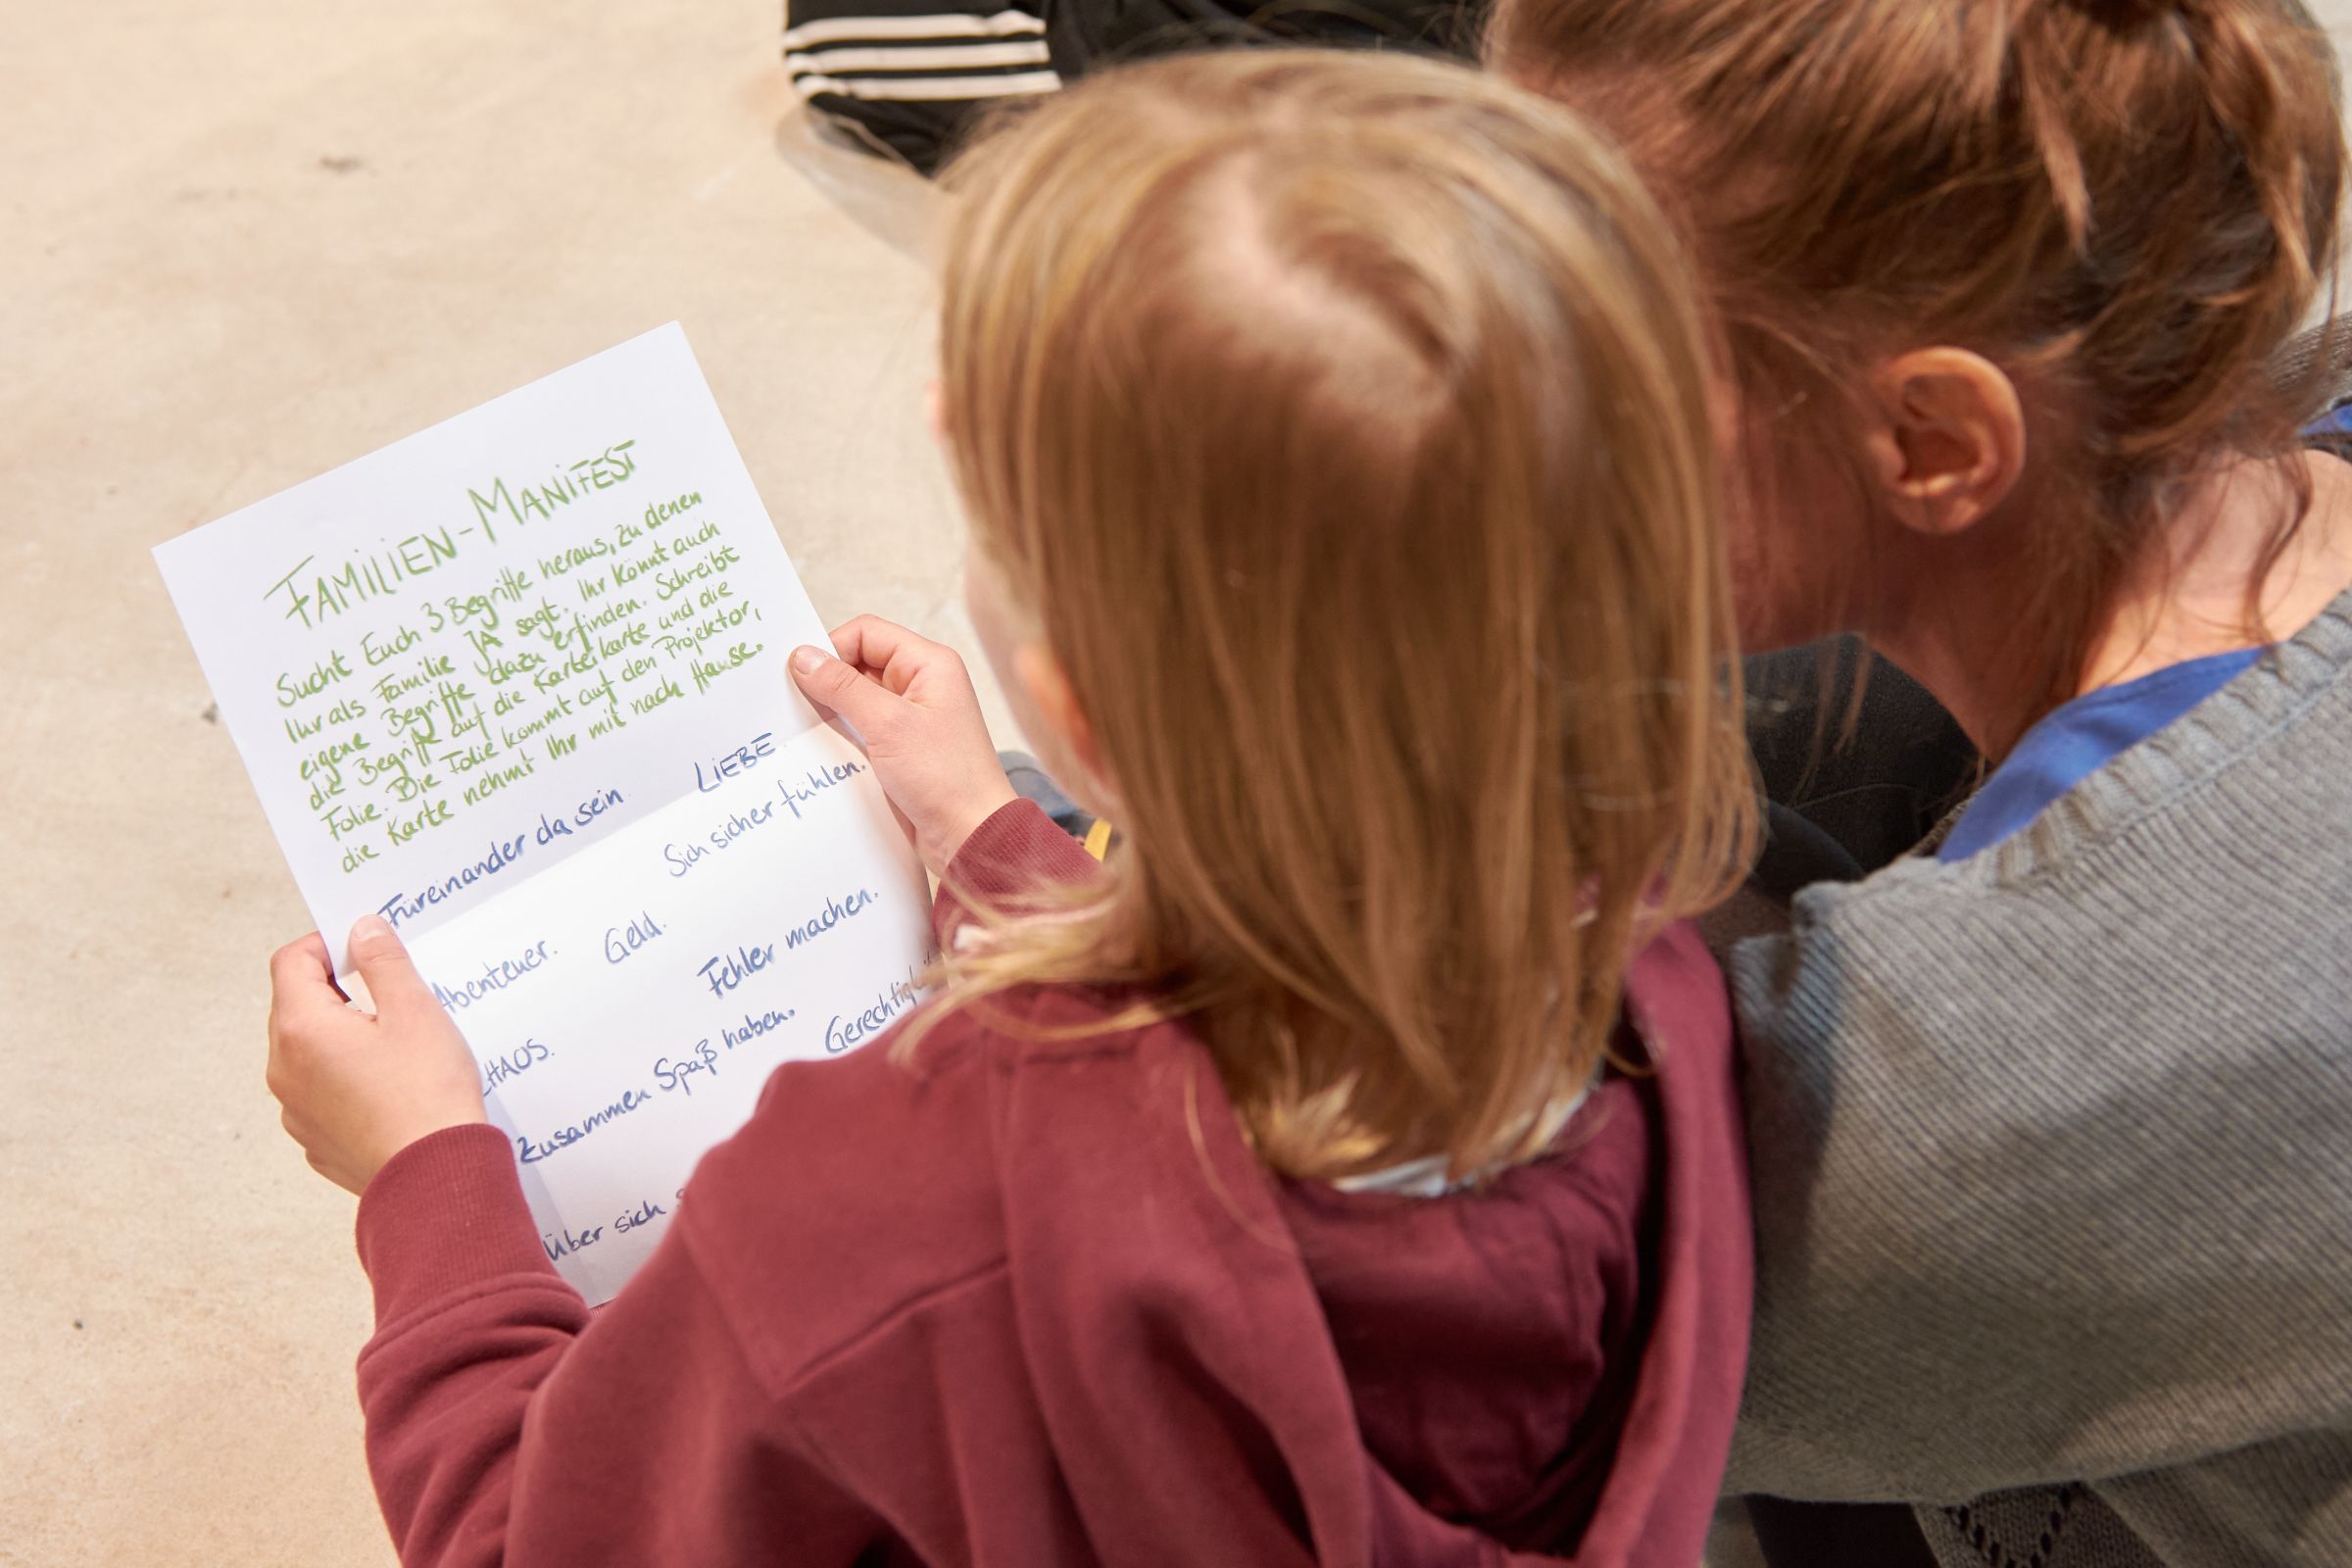 FAMILIEN-MANIFEST
Sucht Euch 3 Begriffe heraus, zu denen
Ihr als Familie JA sagt. Ihr könnt auch
eigene Begriffe dazu erfinden. Schreibt
die Begriffe auf die Karteikarte und die
Folie. Die Folie kommt auf den Projektor,
die Karte nehmt Ihr mit nach Hause.
Füreinander da sein LIEBE
Sich sicher fühlen.
Abenteuer. Geld.
Fehler machen.
CHAOS.
Zusammen Spaß haben. Gerechtigkeit
Über sich